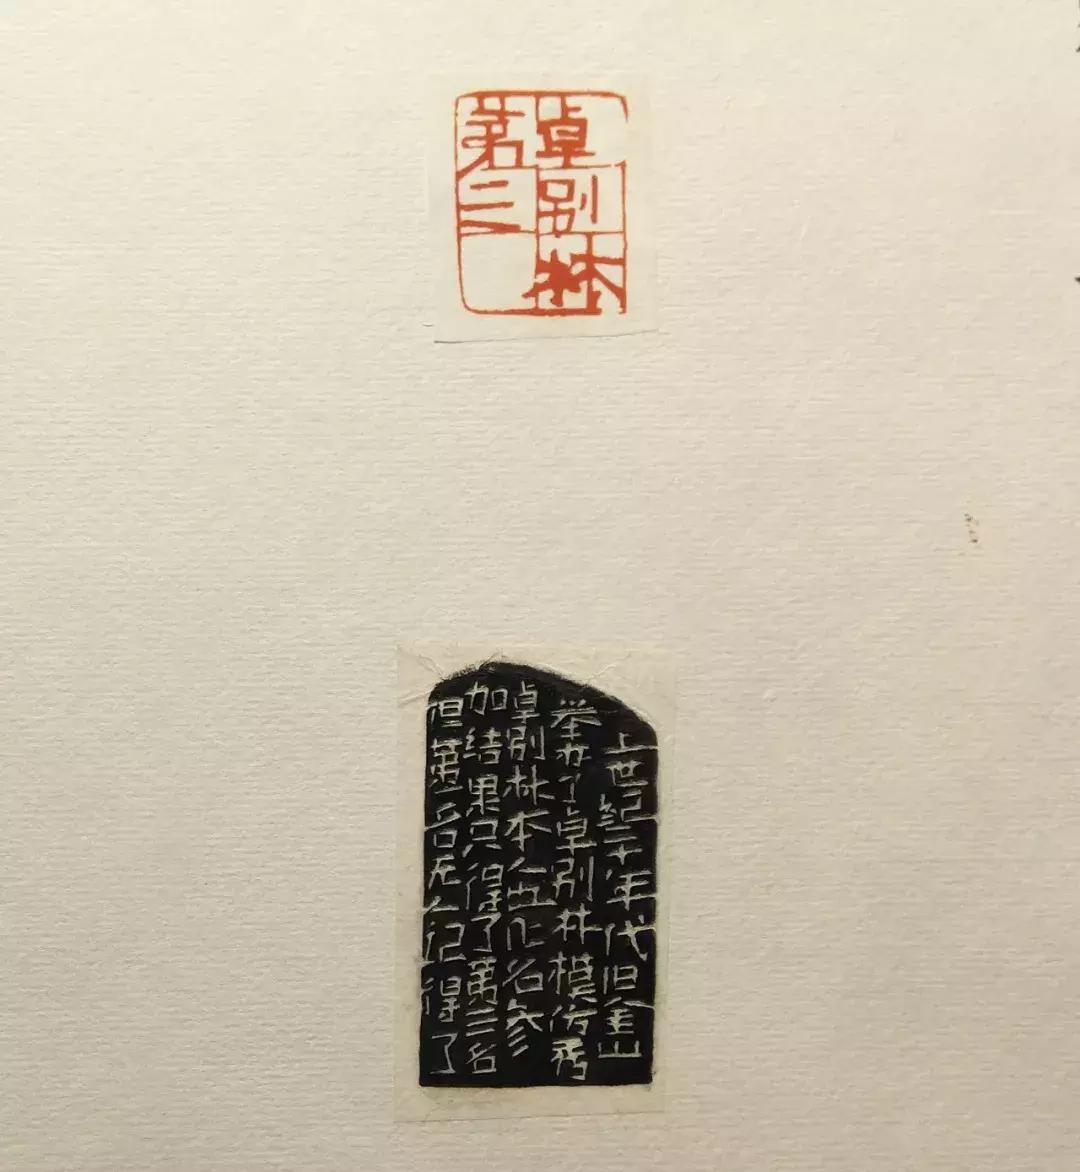 卓别林
第二
上世纪二十年代旧金山
举办了卓别林模仿秀
卓别林本人也化名参
加结果只得了第三名
但第一名无人记得了